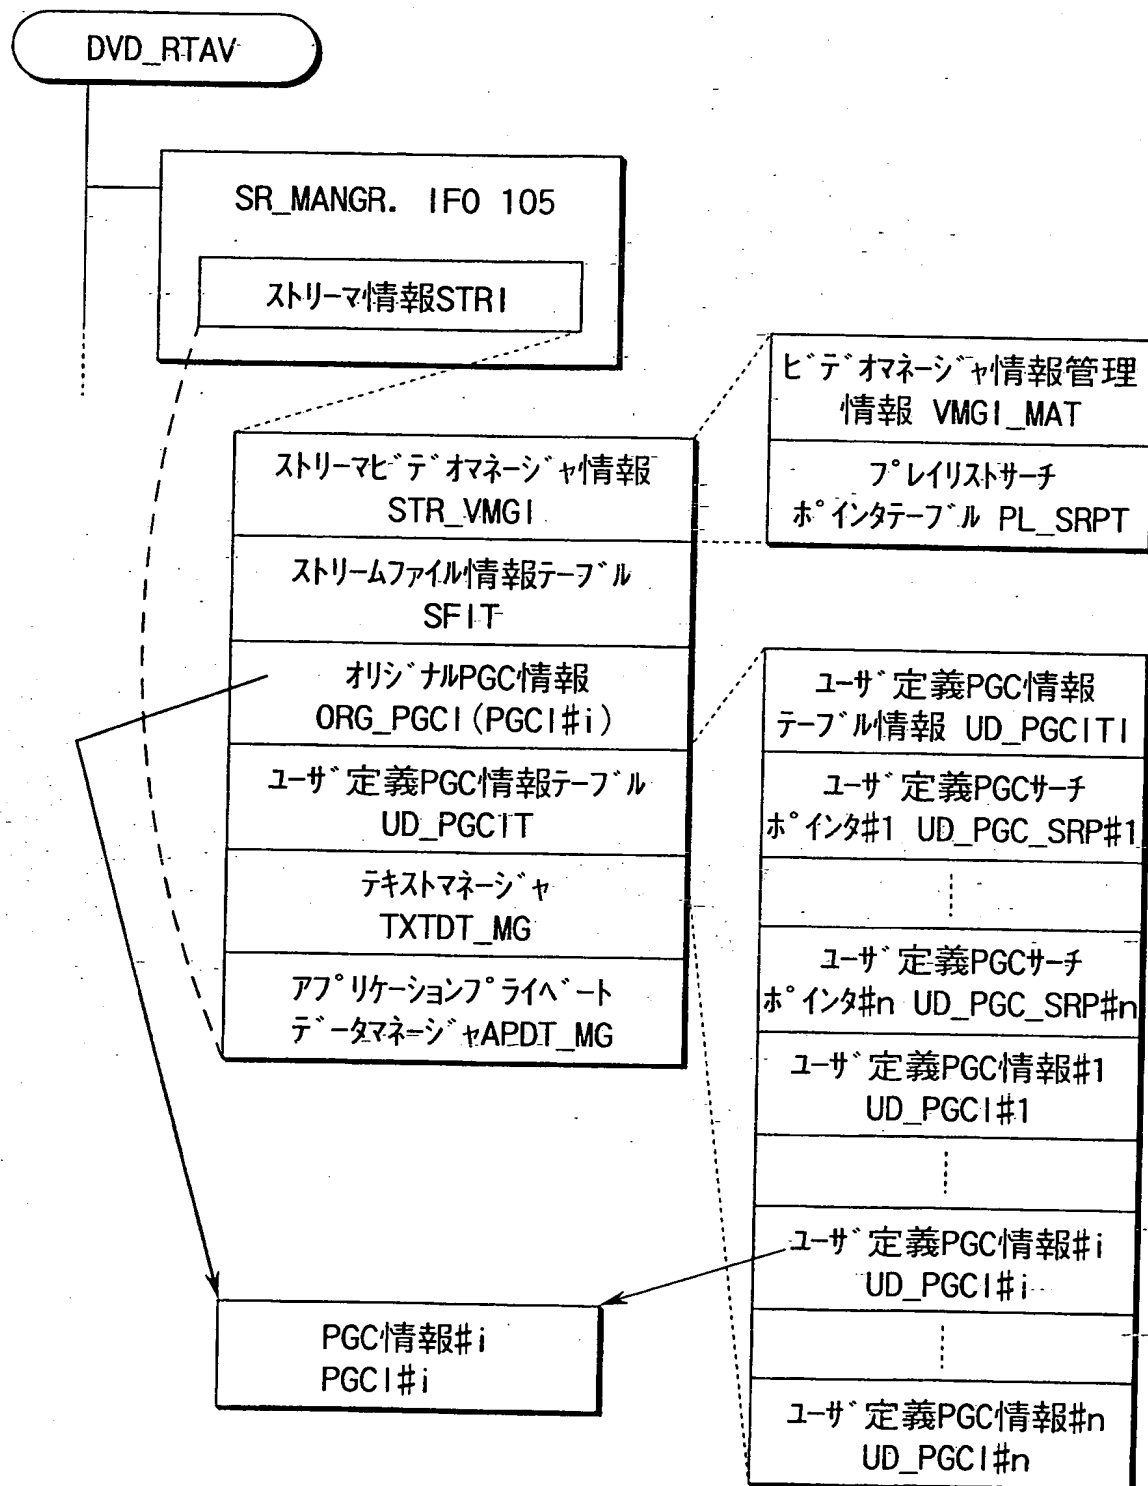 DVD_RTAV
SR_MANGR. IFO 105
ストリーマ情報STRI
ストリーマビデオマネージャ情報
STR_VMGI
ストリームファイル情報テーブル
SFIT
オリジナルPGC情報
ORG_PGCI(PGCI#i)
ユーザ定義PGC情報テーブル
UD_PGCIT
テキストマネージャ
TXTDT_MG
アプリケーションプライベート
データマネージャAPDT_MG
PGC情報#i
PGCI#i
ビデオマネージャ情報管理
情報 VMGI_MAT
プレイリストサーチ
ポインタテーブル PL_SRPT
ユーザ定義PGC情報
テーブル情報 UD_PGCITI
ユーザ定義PGCサーチ
ポインタ#1 UD_PGC_SRP#1
ユーザ定義PGCサーチ
ポインタ#n UD_PGC_SRP#n
ユーザ定義PGC情報#1
UD_PGCI#1
ユーザ定義PGC情報#i
UD_PGCI#i
ユーザ定義PGC情報#n
UD_PGCI#n